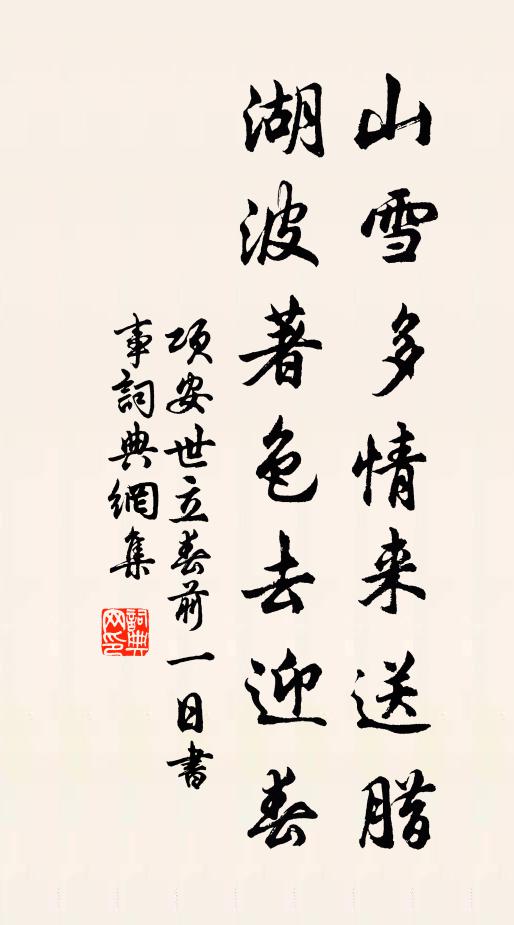 山雪多情来送腊
湖波著色去迎春
项安世立春前一日書
事詞典網集
詞典
网印